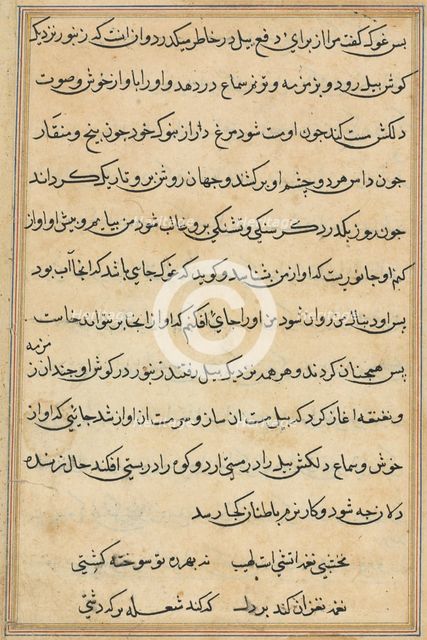 پس غوک گفت مرا از برای دفع پیل در خاطر میگذرد و ان انست که زنبور نزدیک
کوش پیل رود و بزمزمه و ترنم سماع در دهد و او را باواز خوش و صوت
دلکش مست کند چون او مست شود مرغ دارازنوک خود چون بیخ و منقار
چون داس هر دو چشم او برکشد و جهان روشن برو تاریک کرداند
چون روز بگذرد کرسنکی و تشنکی برو غالب شود من بیایم و پیش او اواز
کنم او جانوریست که اواز من بشناسد و کوید که غوک جای باشد که انجا آب بود
پس او دنبال من روان شود من او را جای افکنم که او از انجا بر نتواند خاست
پس همچنان کردند و هر سه نزدیک پیل رفتند زنبور در کوش او چندان زمزمه
و نغنغه اغاز کرد که پیل مست ان ساز و سرمست ان اواز شد جائی که اواز
خوش و سماع دلکش پیل را در مستی ارد و کوه را در پستی افکند حال زنده
دلان چه شود و کار نرم باطنان کجا رسد
نخشبی نغمه اتشی است لهیب نه بهرزه تو سوخته کشتی
نغمه نغز ان کند بر دل که نکند شعله بر که دشتی
Heritage